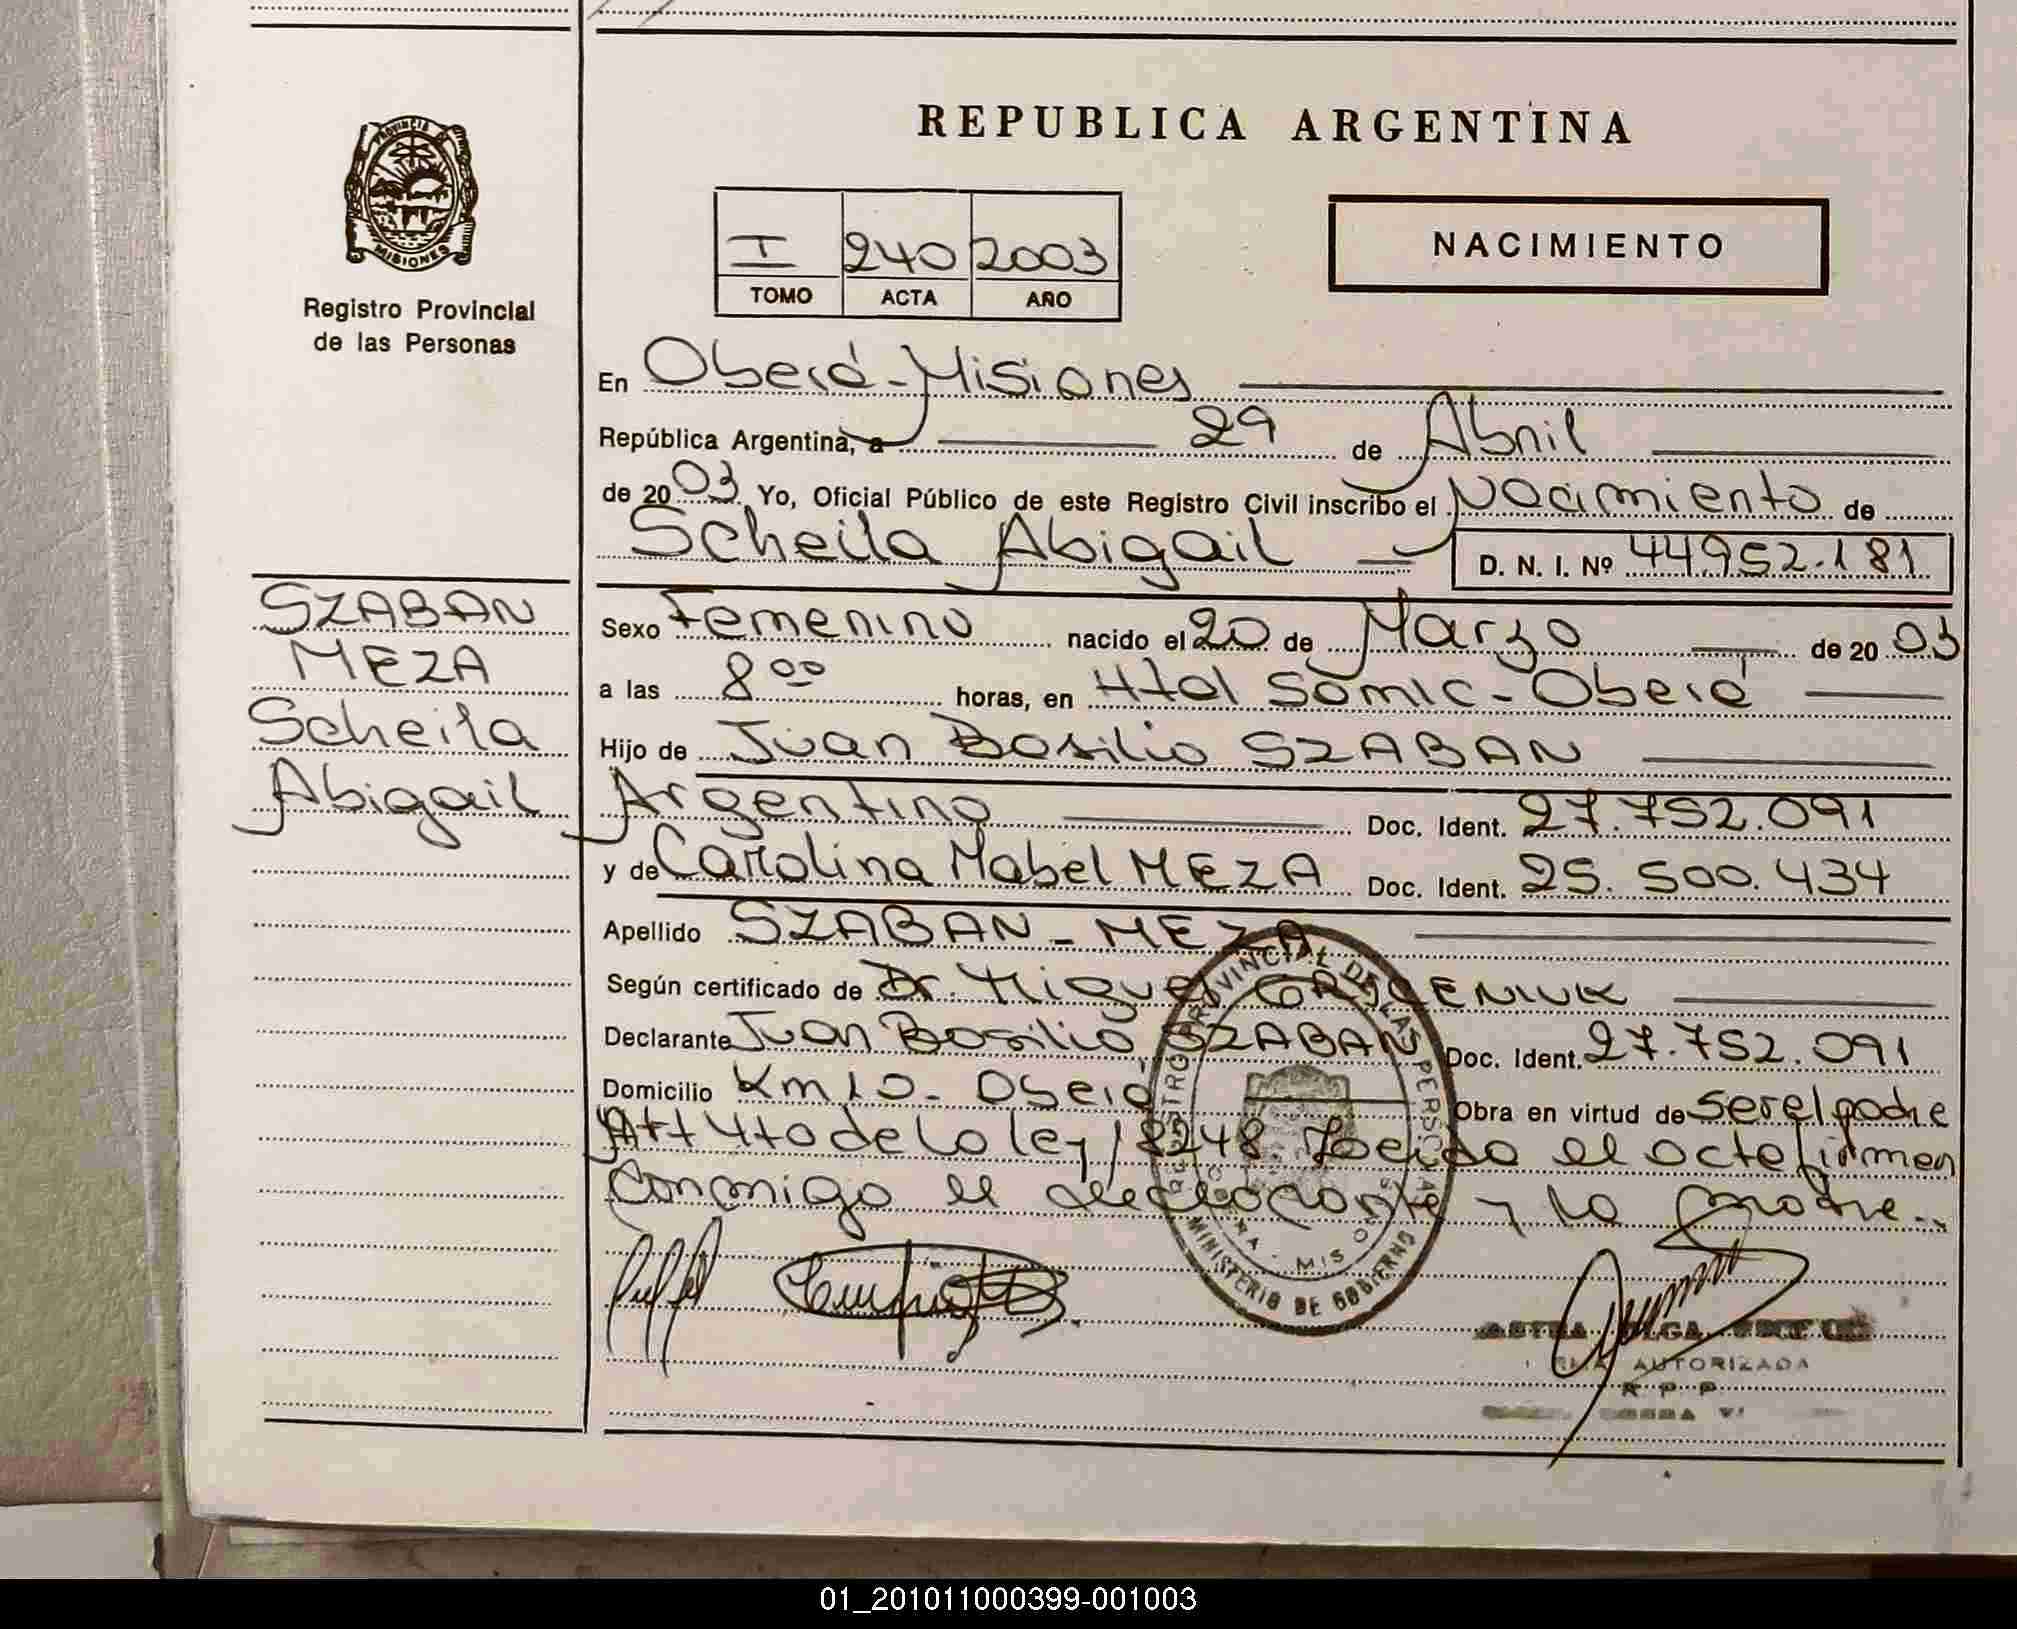 PROVINCIA
MISIONES
Registro Provincial
de las Personas
REPUBLICA ARGENTINA
I 240 2003
TOMO ACTA AÑO
NACIMIENTO
En Oberá - Misiones
República Argentina, a 29 de Abril
de 2003 Yo, Oficial Público de este Registro Civil inscribo el Nacimiento de
Scheila Abigail D. N. I. Nº 44952.181
SZABAN
MEZA
Scheila
Abigail
Sexo Femenino nacido el 20 de Marzo de 2003
a las 8 00 horas, en Htal Samic - Oberá
Hijo de Juan Basilio SZABAN
Argentino Doc. Ident. 27.752.091
y de Carolina Mabel MEZA Doc. Ident. 25.500.434
Apellido SZABAN - MEZA
Según certificado de Dr. Miguel
Declarante Juan Basilio SZABAN Doc. Ident. 27.752.091
Domicilio Km 10 - Oberá Obra en virtud de ser el padre
Art 4to de la ley 18248. Leida el acta firman
conmigo el declarante y la madre..
REGISTRO PROVINCIAL DE LAS PERSONAS
MINISTERIO DE GOBIERNO
OLGA
AUTORIZADA
R P P
01_201011000399-001003